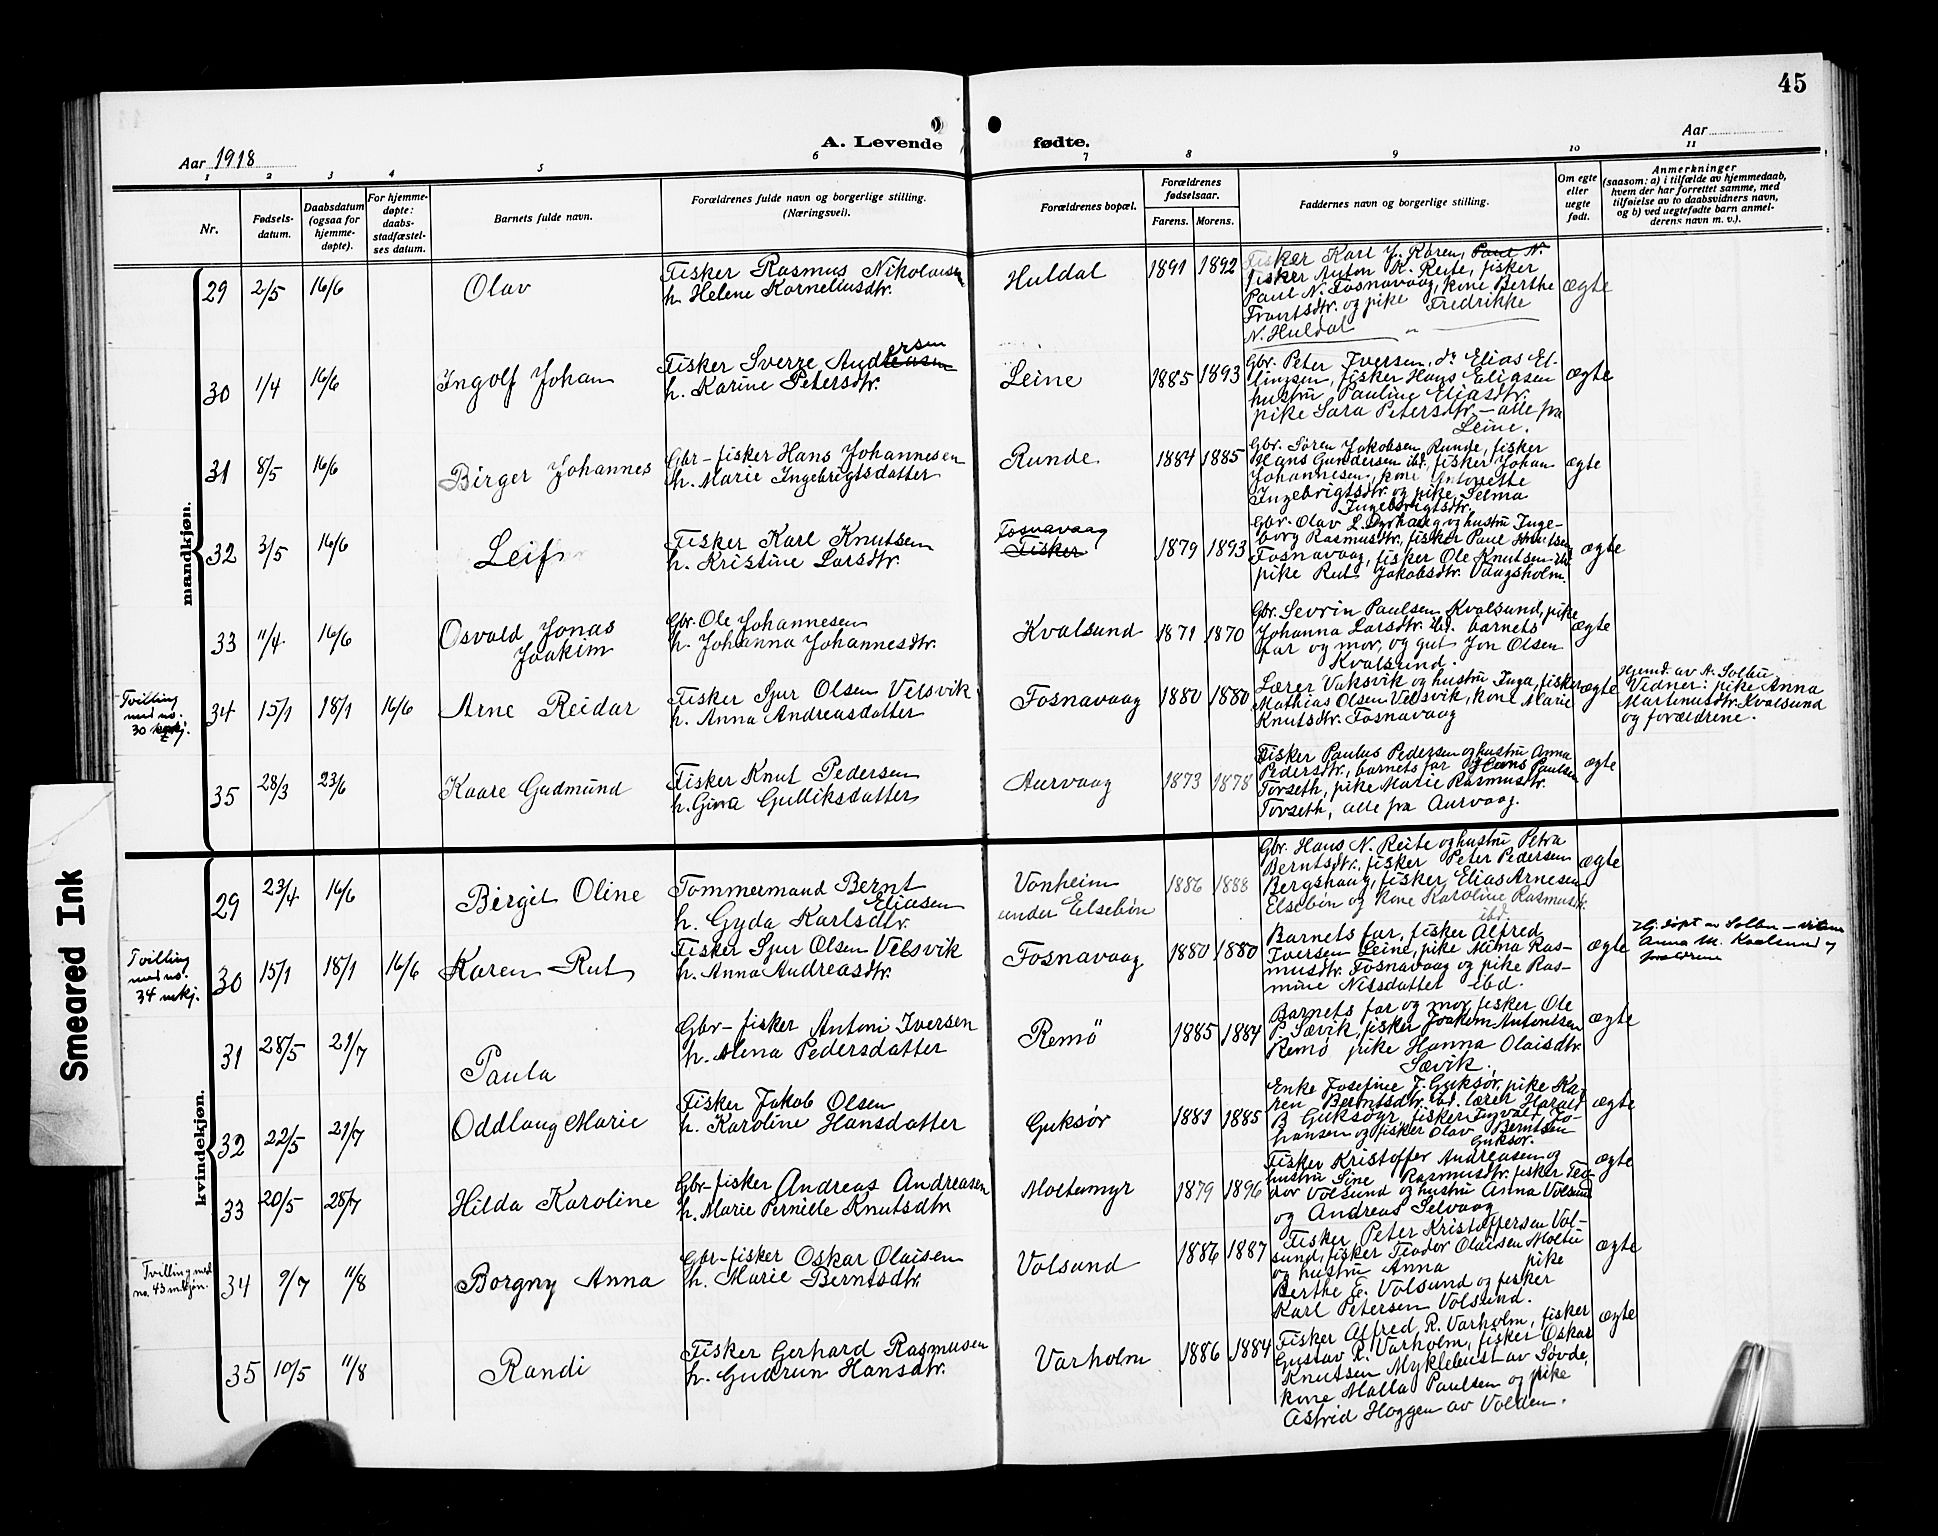 45
A. Levende fødte.
Aar 1918
Aar
1 2 3 4 5 6 7 8 9 10 11
Nr.
Fødsels-
datum.
Daabsdatum
(ogsaa for
hjemme-
døpte).
For hjemme-
døpte:
daabs-
stadfæstel-
ses datum.
Barnets fulde navn.
Forældrenes fulde navn og borgerlige stilling.
(Næringsvei).
Forældrenes bopæl.
Forældrenes
fødselsaar.
Farens. Morens.
Faddernes navn og borgerlige stilling.
Om egte
eller
uegte
født.
Anmerkninger
(saasom: a) i tilfælde av hjemmedaab,
hvem der har forrettet samme, med
tilføielse av to daabsvidners navn,
og b) ved uegtefødte barn anmel-
derens navn m. v.).
mandkjøn.
29 2/5 16/6 Olav
Fisker Rasmus Nikolaisen
h. Helene Korneliusdtr.
Huldal 1891 1892
Fisker Karl J. Kören, Paul N.
fisker Anton K. Reite, fisker
Paul N. Fosnavaag, kone Berthe
Frantsdtr. og pike Fredrikke
N. Huldal
ægte
30 1/4 16/6 Ingolf Johan
Fisker Sverre Andersen
h. Karine Petersdtr.
Leine 1885 1893
Gbr. Peter Iversen, do Elias El-
lingsen, fisker Hans Eliasen
hustru Pauline Eliasdtr.
pike Sara Petersdtr. – alle fra
Leine.
ægte
31 8/5 16/6 Birger Johannes
Gbr – fisker Hans Johannesen
h. Marie Ingebrigtsdatter
Runde 1884 1885
Gbr. Søren Jakobsen Runde, fisker
Hans Gundersen ibd, fisker Johan
Johannesen, kone Antonette
Ingebrigtsdtr. og pike Selma
Ingebrigtsdtr.
ægte
32 3/5 16/6 Leif
Fisker Karl Knutsen
h. Kristine Larsdtr.
Fosnavaag
Fisker
1879 1893
Gbr. Olav L. Dyrhaug og hustru Inge-
borg Rasmusdtr., fisker Paul Knutsen
Fosnavaag, fisker Ole Knutsen ibd
pike Rut Jakobsdtr. Vaagsholm.
ægte
33 11/4 16/6 Osvald Jonas
Joakim
Gbr. Ole Johannesen
h. Johanna Johannesdtr.
Kvalsund 1871 1870
Gbr. Sevrin Paulsen Kvalsund, pike
Johanna Larsdtr. ibd. barnets
far og mor, og gut Jon Olsen
Kvalsund.
ægte
Tvilling
med no.
30 kvkj.
34 15/1 18/1 16/6 Arne Reidar
Fisker Sjur Olsen Velsvik
h. Anna Andreasdatter
Fosnavaag 1880 1880
Lærer Vaksvik og hustru Inga, fisker
Mathias Olsen Velsvik, kone Marie
Knutsdtr. Fosnavaag
ægte
Hjemd. av A. Solbu
Vidner: pike Anna
Martinusdtr. Kvalsund
og forældrene.
35 28/3 23/6 Kaare Gudmund
Fisker Knut Pedersen
h. Gina Gulliksdatter
Aurvaag 1873 1878
Fisker Paulus Pedersen og hustru Anna
Pedersdtr., barnets far og Hans Paulsen
Torseth, pike Marie Rasmusdtr.
Torseth, alle fra Aurvaag.
ægte
kvindekjøn.
29 23/4 16/6 Birgit Oline
Tømmermand Bernt
Eliasen
h. Gyda Karlsdtr.
Vonheim
under Elsebøn
1886 1888
Gbr. Hans N. Reite og hustru Petra
Berntsdtr. fisker Peter Pedersen
Bergshaug, fisker Elias Arnesen
Elsebøn og kone Karoline Rasmusdtr.
ibd.
ægte
Tvilling
med no.
34 mkj.
30 15/1 18/1 16/6 Karen Rut
Fisker Sjur Olsen Velsvik
h. Anna Andreasdtr.
Fosnavaag 1880 1880
Barnets far, fisker Alfred
Iversen Leine, pike Mina Ras-
musdtr. Fosnavaag og pike Ras-
mine Nilsdatter ibd.
ægte
Hj. døpt av Solbu –
Anna M. Kvalsund og
forældrene
31 28/5 21/7 Paula
Gbr – fisker Antoni Iversen
h. Alena Pedersdatter
Remö 1885 1884
Barnets far og mor, fisker Ole
P. Sævik, fisker Joakim Antonisen
Remø, pike Hanna Olaisdtr.
Sævik.
ægte
32 22/5 21/7 Oddlaug Marie
Fisker Jakob Olsen
h. Karoline Hansdatter
Guksør 1883 1885
Enke Josefine J. Guksør, pike Ka-
ren Berntsdtr. ibd. lærer Harald
B Guksøyr, fisker Ingvald Jo-
hansen og fisker Olav Berntsen
Guksør.
ægte
33 20/5 28/7 Hilda Karoline
Gbr-fisker Andreas Andreasen
h. Marie Pernille Knutsdtr
Moltumyr 1879 1896
Fisker Kristoffer Andreasen og
hustru Sine Rasmusdtr. fisker Teo-
dor Volsund og hustru Anna Volsund
og Andreas Selvaag
ægte
Tvilling med
no. 43 m.kjøn.
34 9/7 11/8 Borgny Anna
Gbr-fisker Oskar Olaisen
h. Marie Berntsdtr.
Volsund 1886 1887
Fisker Peter Kristoffersen Vol-
sund, fisker Teodor Olaisen Moltu
og hustru Anna pike
Berthe E. Volsund og fisker
Karl Petersen Volsund.
ægte
35 10/5 11/8 Randi
Fisker Gerhard Rasmusen
h. Gudrun Hansdtr.
Varholm 1886 1884
Fisker Alfred R. Varholm, fisker
Gustav R. Varholm, fisker Oskar
Knutsen Myklebust av Søvde,
kone Malla Paulsen og pike
Astrid Haggen av Volden.
ægte
Smeared Ink